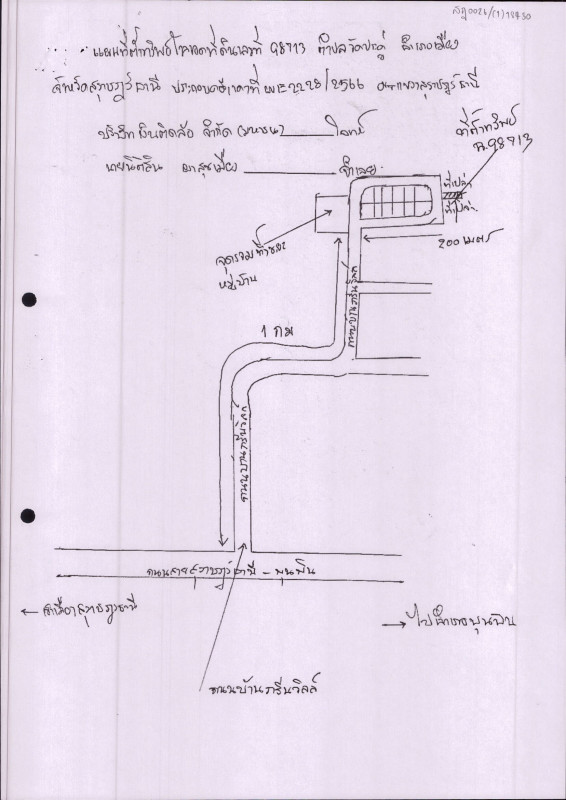 สฎ0026/(1)18450
แผนที่ตั้งทรัพย์ โฉนดที่ดินเลขที่ 98713 ตำบลวัดประดู่ อำเภอเมือง
จังหวัดสุราษฎร์ธานี ประกอบคดีหมายเลขแดงที่ ผบE2228/2566 ศาลแขวงสุราษฎร์ธานี
บริษัท เงินติดล้อ จำกัด (มหาชน) โจทก์
จำเลย
ที่ตั้งทรัพย์
ฉ.98713
ที่เปล่า
ที่เปล่า
200 เมตร
จุดรวมทิ้งขยะ
หมู่บ้าน
ถนนบ้านกรีนวิลล์
1 กม
ถนนบ้านกรีนวิลล์
ถนนสายสุราษฎร์ธานี - พุนพิน
← สุราษฎร์ธานี
→ ไปอำเภอพุนพิน
ถนนบ้านกรีนวิลล์